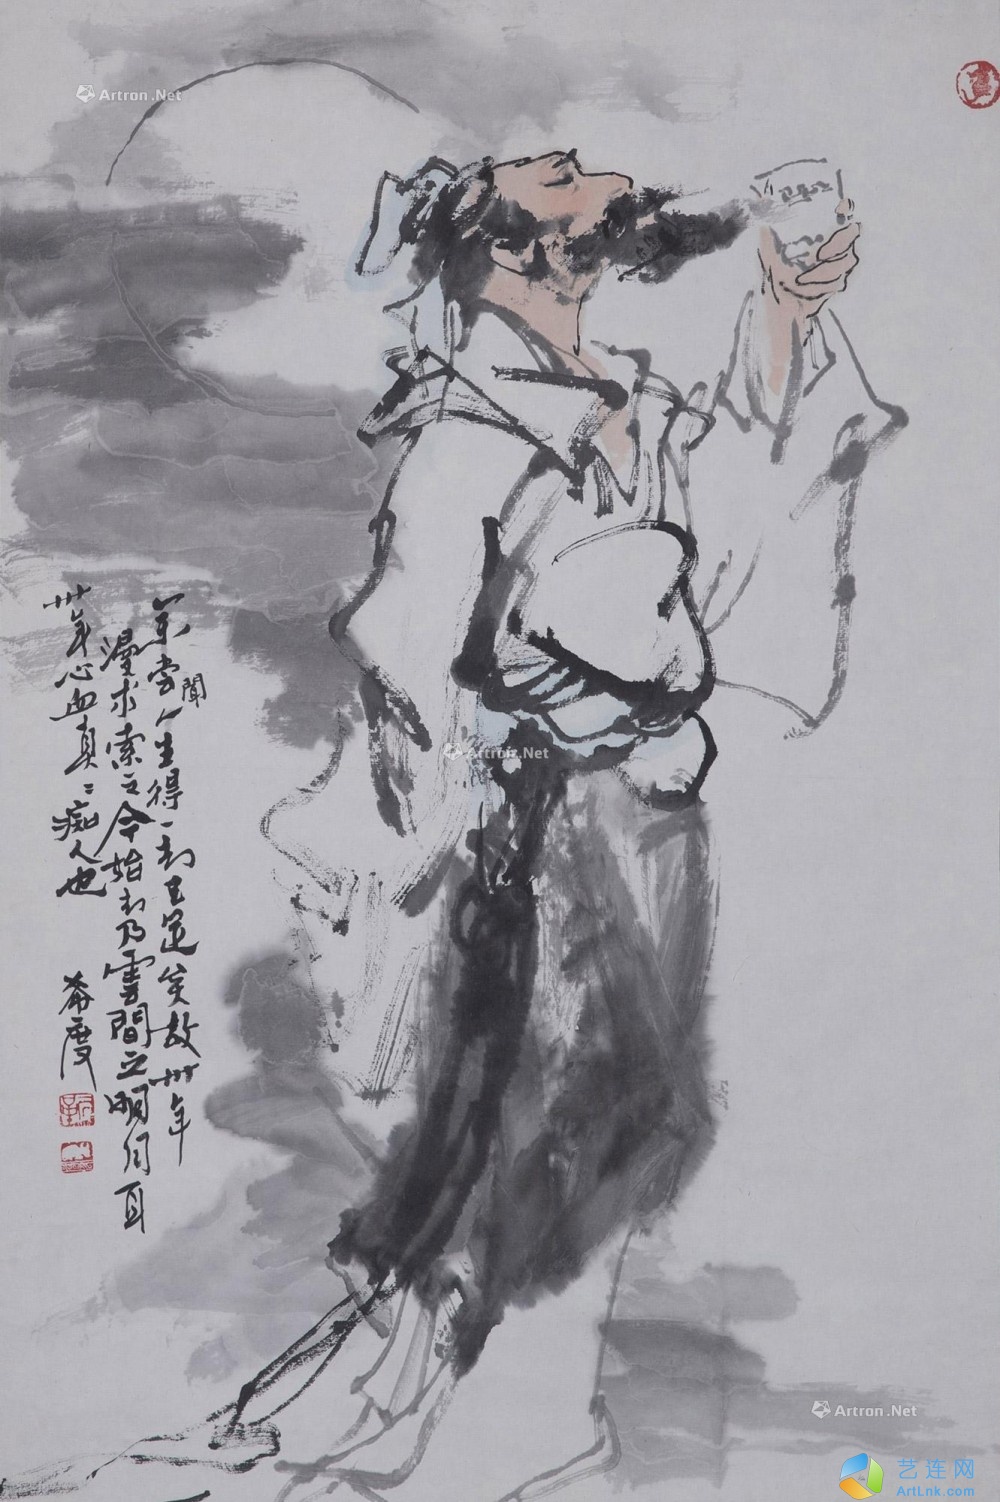 尝聞人生得一知己足矣故卅年
漫求索之今始知乃雲間之明月耳
卅年心血真〻痴人也
希度
Artron.Net
Artron.Net
Artron.Net
艺连网
ArtLnk.com